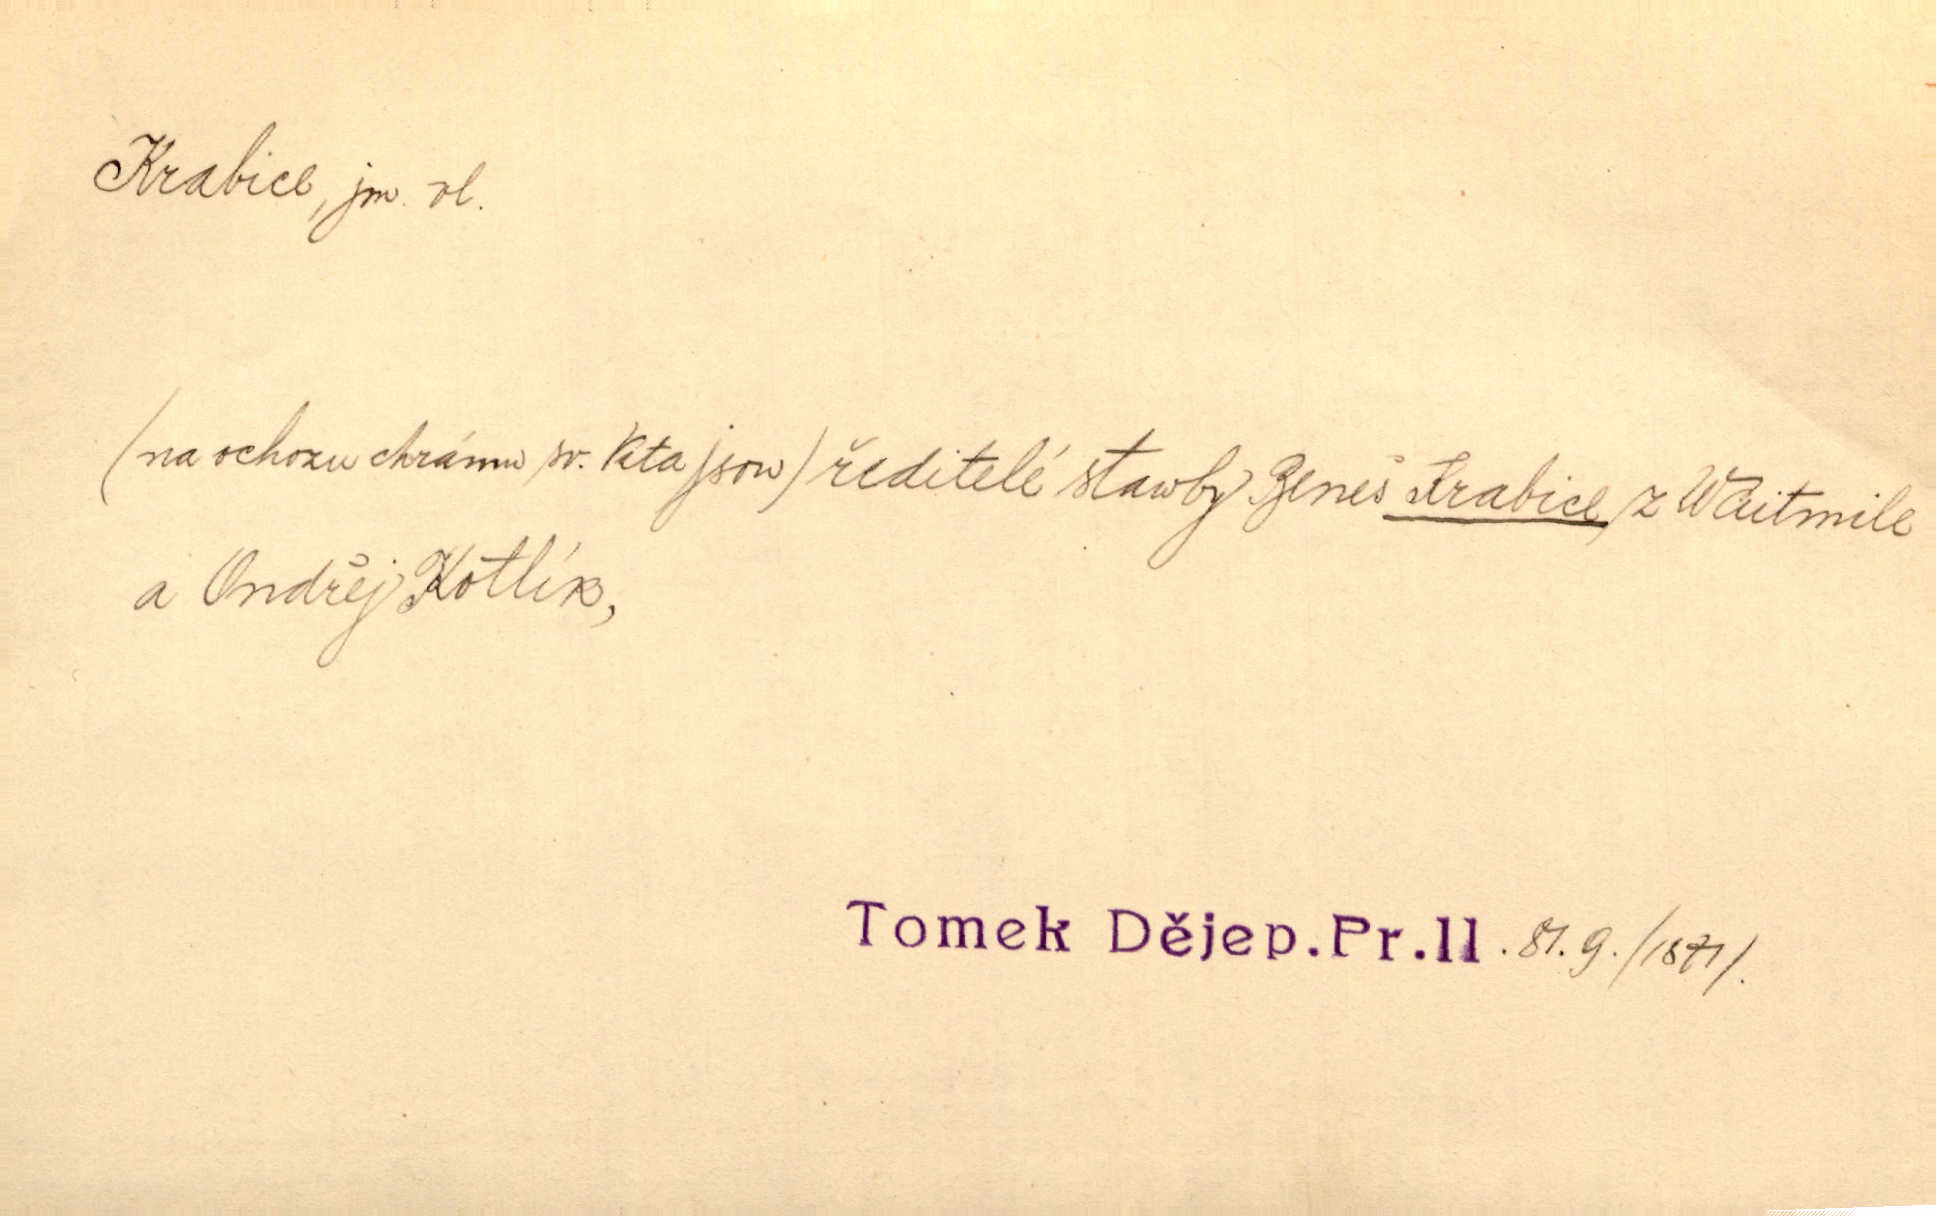 Krabice, jm. vl.
(na ochozu chrámu sv. Víta jsou) ředitelé stawby Beneš Krabice z Waitmile
a Ondřej Kotlík,
Tomek Dějep. Pr. II. 81. 9. /1871/.